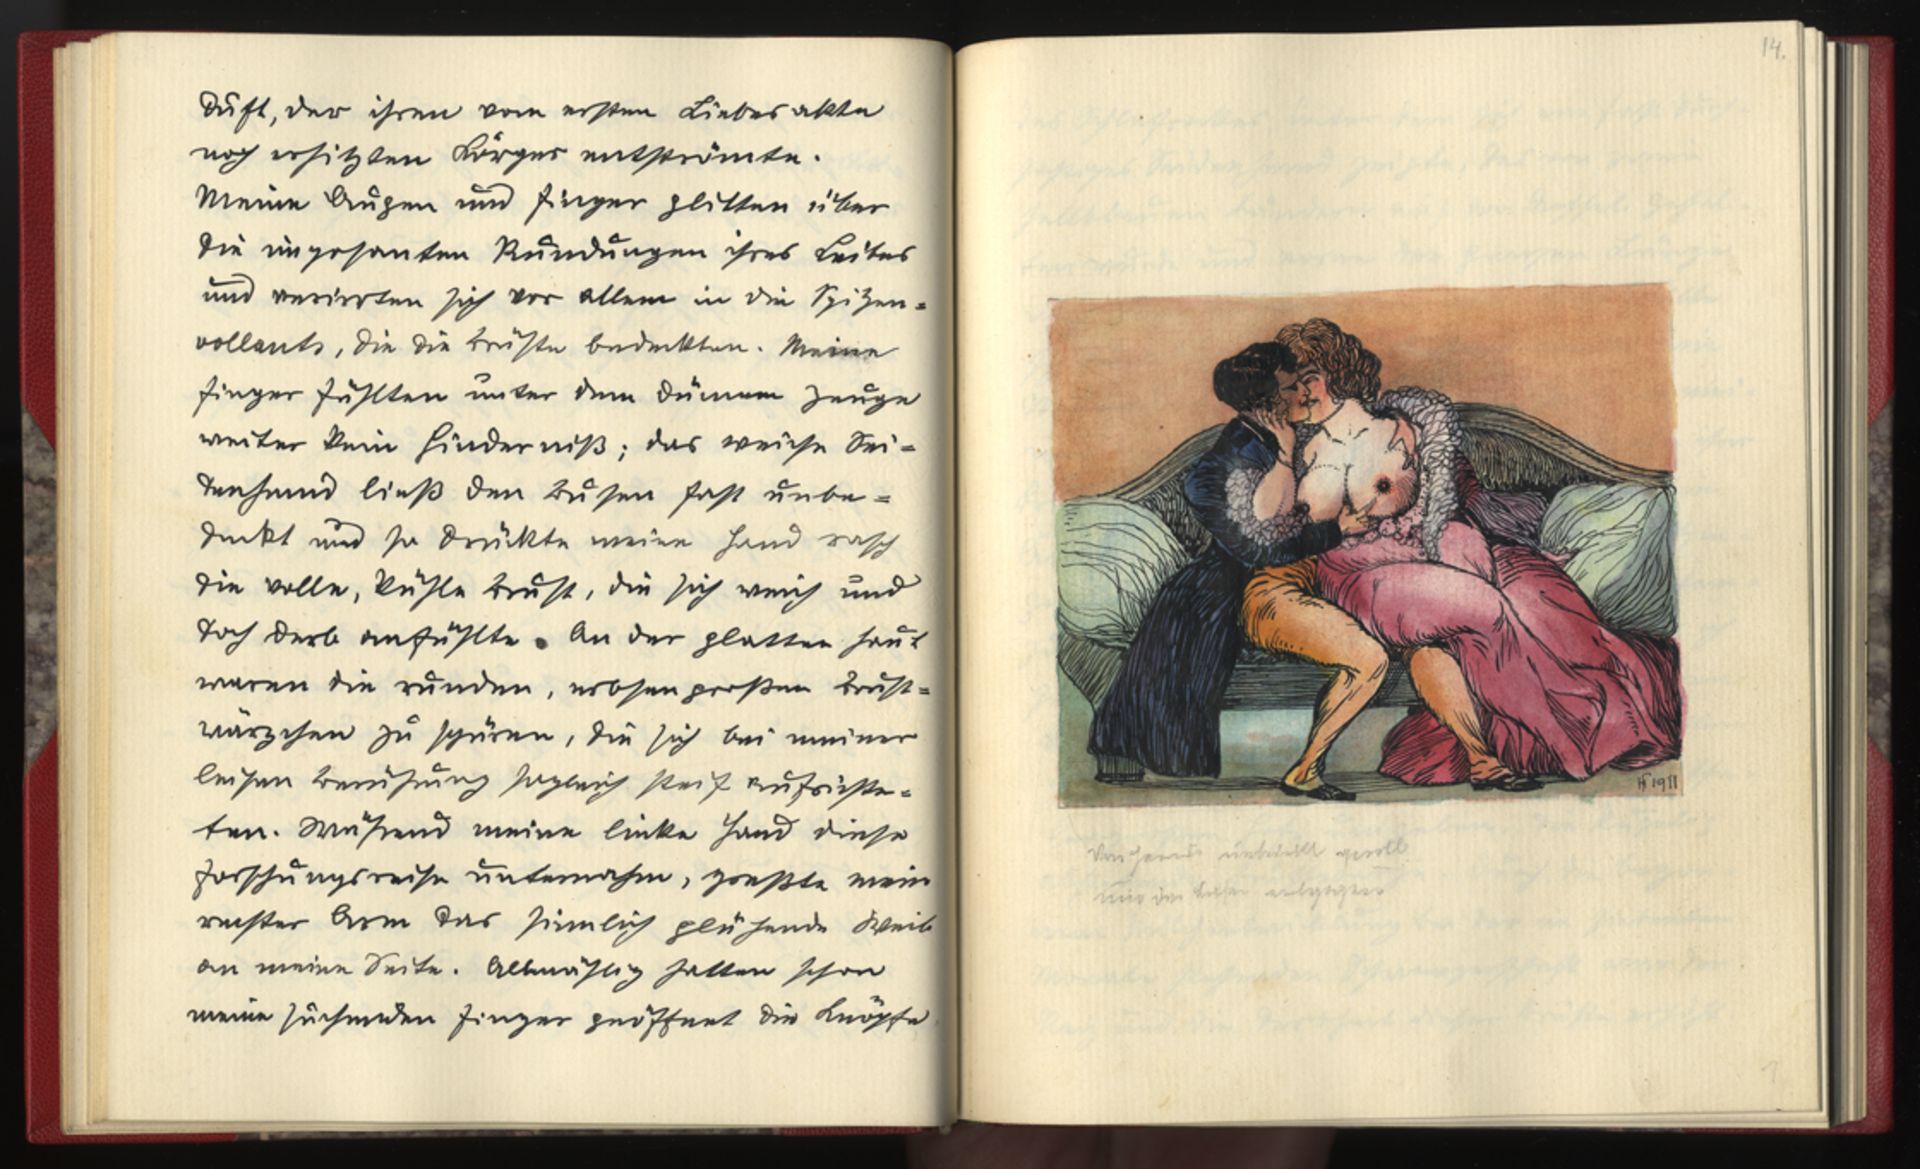 Duft, der ihrem vom ersten Liebesakte
noch erhitzten Körper entströmte.
Meine Augen und Finger glitten über
die imposanten Rundungen ihres Leibes
und verirrten sich vor allem in die Spitzen=
vollants, die die Brüste bedeckten. Meine
Finger fühlten unter dem dünnen Zeuge
weiter kein Hinderniß; das weiche Sei=
denhemd ließ den Busen fast unbe=
deckt und so drückte meine Hand rasch
die volle, kühle Brust, die sich weich und
doch derb anfühlte. An der glatten Haut
waren die runden, erbsengroßen Brust=
wärzchen zu spüren, die sich bei meiner
leisen Berührung sogleich steif aufrichte=
ten. Während meine linke Hand diese
Forschungsreise unternahm, preßte mein
rechter Arm das sinnlich glühende Weib
an meine Seite. Allmählig hatten schon
meine suchenden Finger geöffnet die Knöpfe
14.
HF 1911